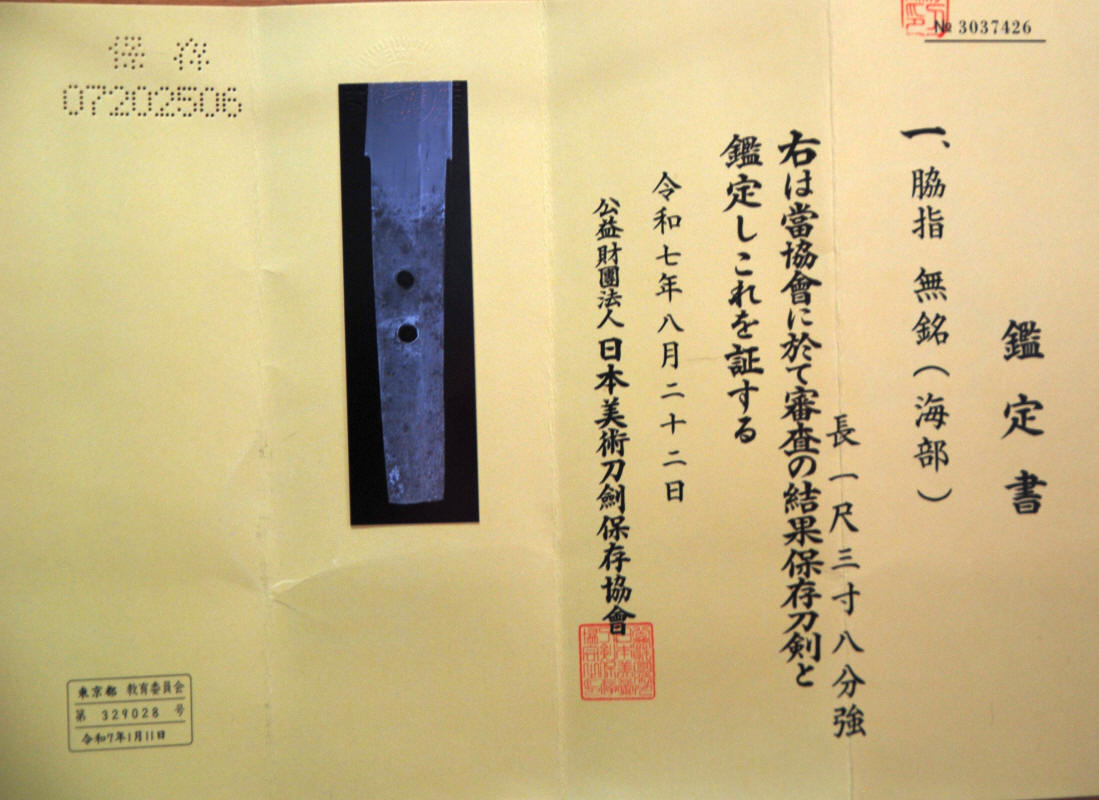 № 3037426
鑑定書
一、脇指 無銘(海部)
長一尺三寸八分強
右は當協會に於て審査の結果保存刀剣と
鑑定しこれを証する
令和七年八月二十二日
公益財團法人日本美術刀劍保存協會
保存
07202506
東京都 教育委員会
第 329028 号
令和7年1月11日